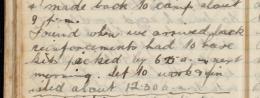 & made back to camp about
9 p.m.
Found when we arrived back
reinforcements had to have
kits packed by 6 a.m. next
morning. Set to work & fin
ised about 12.30 a.m.